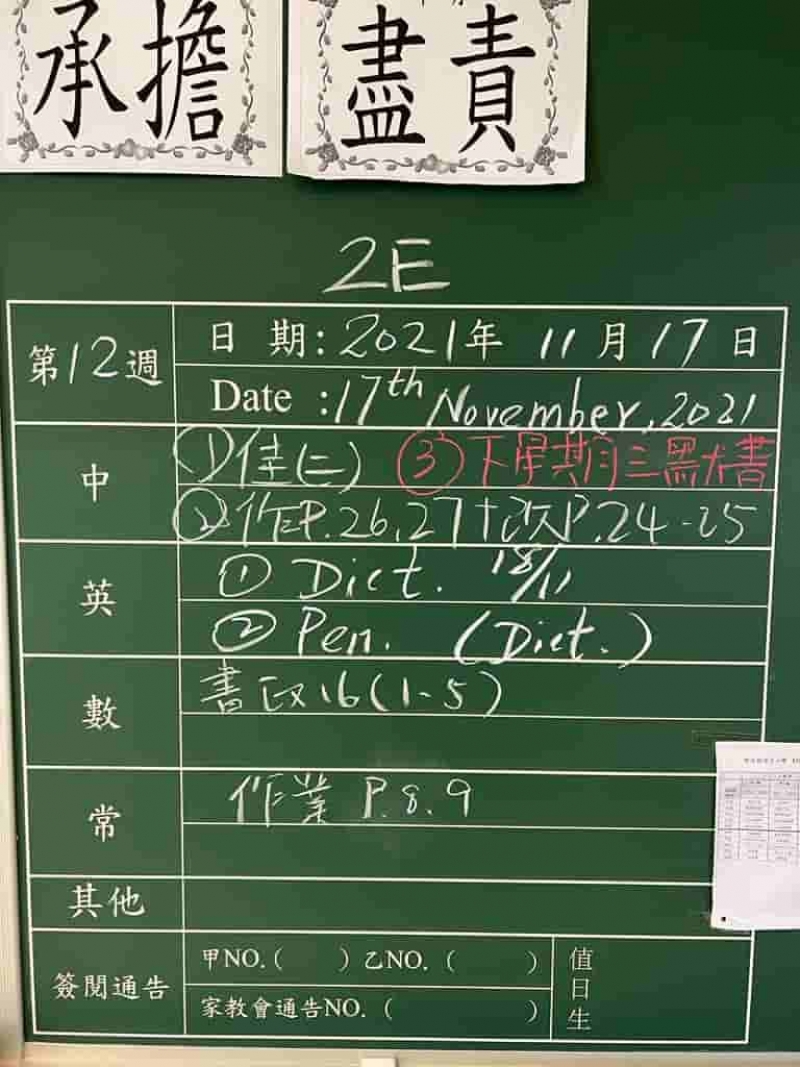 承擔
盡責
2E
第12週
日期:2021年 11月17日
Date :17th November, 2021
中
①佳(二) ③下星期三默書
②作P.26,27+改P.24-25
英
① Dict. 18/11
② Pen. (Dict.)
數
書P.16(1-5)
常
作業 P.8.9
其他
簽閱通告
甲NO.( ) 乙NO. ( )
家教會通告NO. ( )
值日生